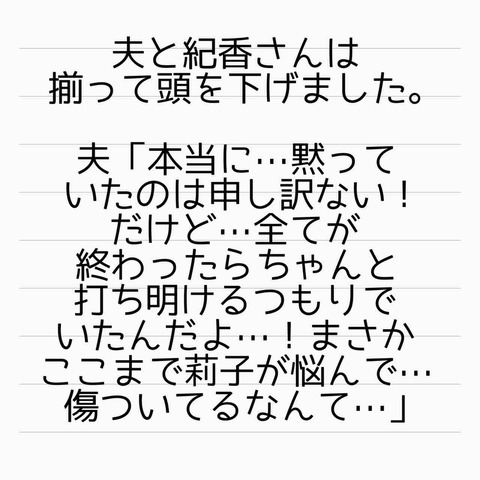 夫と紀香さんは
揃って頭を下げました。
夫「本当に…黙って
いたのは申し訳ない！
だけど…全てが
終わったらちゃんと
打ち明けるつもりで
いたんだよ…！まさか
ここまで莉子が悩んで…
傷ついてるなんて…」